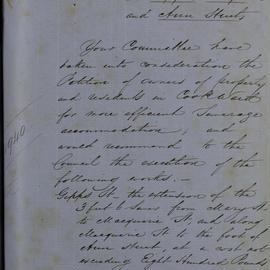 and Ann Street
Your Committee have
taken into consideration the
Petition of owners of property
and residents in Cook Ward
for more efficient Sewerage
accommodation, and
would recommend to the
Council the execution of the
following works:—
Gipps St the extension of the
3 feet 6 Sewer from
to Macquarie St and along
Macquarie St to the foot of
Ann Street, at a cost not
exceeding Eight Hundred Pounds
940